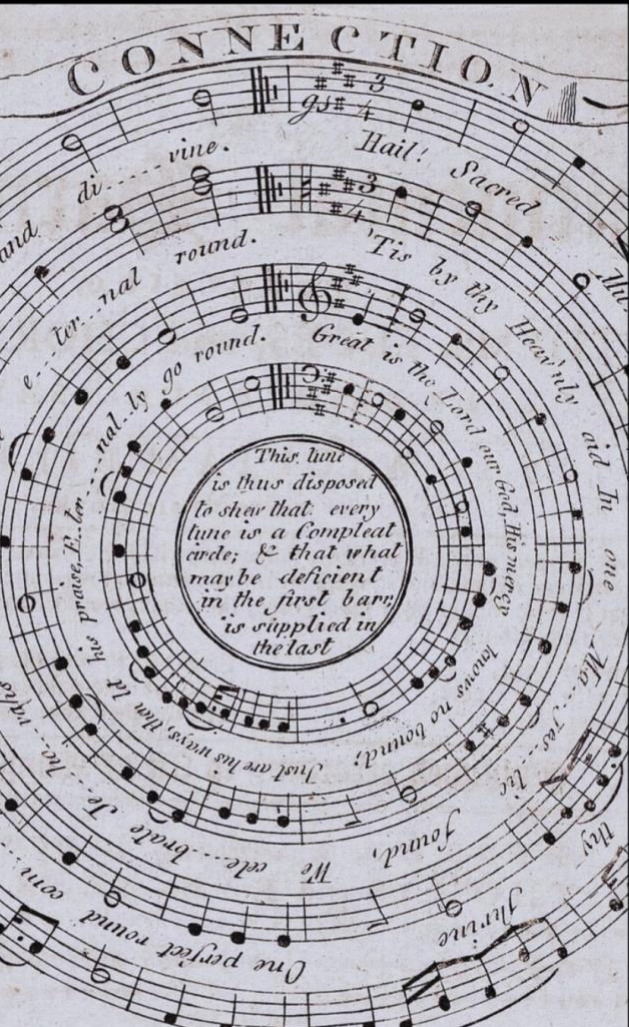 CONNECTION
Hail! Sacred
thy
shrine
and di----vine.
'Tis by thy Heav'nly aid In one Ma--jes--tic
found,
One perfect round com
e--ter--nal round.
Great is the Lord our God, His mercy
knows no bound;
We cele--brate Je--ho--vahs
Just are his ways, then let his praise, E--ter----nal-ly go round.
This tune
is thus disposed
to shew that every
tune is a Compleat
circle; & that what
may be deficient
in the first barr,
is supplied in
the last